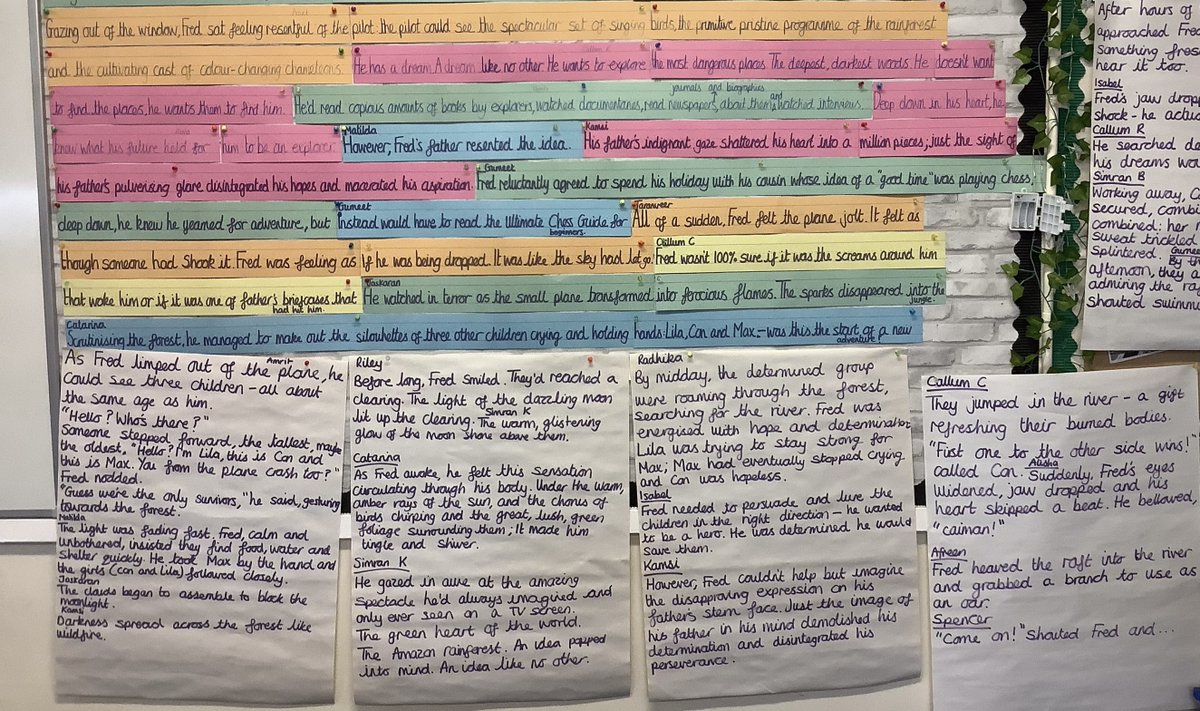 Gazing out of the window, Fred sat feeling resentful of the pilot. the pilot could see the spectacular set of singing birds, the primitive pristine programme of the rainforest
and the cultivating cast of colour-changing chameleons. He has a dream. A dream like no other. He wants to explore the most dangerous places. The deepest, darkest woods. He doesn't want
to find the places, he wants them to find him. He'd read copious amounts of books by explorers, watched documentaries, read newspapers, journals and biographies about them and watched interviews. Deep down in his heart, he
knew what his future held for him to be an explorer. Matilda However, Fred's father resented the idea. Kamsi His father's indignant gaze shattered his heart into a million pieces; just the sight of
his father's pulverising glare disintegrated his hopes and macerated his aspiration. Gurneet Fred reluctantly agreed to spend his holiday with his cousin whose idea of a "good time" was playing chess;
deep down, he knew he yearned for adventure, but Gurneet instead would have to read the Ultimate Chess Guide for beginners. Jaranveer All of a sudden, Fred felt the plane jolt. It felt as
though someone had shook it. Fred was feeling as if he was being dropped. It was like the sky had let go. Callum C Fred wasn't 100% sure if it was the screams around him
that woke him or if it was one of father's briefcases that had hit him. Jaskaran He watched in terror as the small plane transformed into ferocious flames. The sparks disappeared into the jungle.
Catarina
Scrutinising the forest, he managed to make out the silouhettes of three other children crying and holding hands. Lila, Con and Max – was this the start of a new adventure?
As Fred limped out of the plane, he Amrit
could see three children - all about
the same age as him.
"Hello? Who's there?"
Someone stepped forward, the tallest, maybe
the oldest. "Hello? I'm Lila, this is Con and
this is Max. You from the plane crash too?"
Fred nodded.
"Guess we're the only survivors," he said, gesturing
towards the forest.
Matilda
The light was fading fast. Fred, calm and
unbothered, insisted they find food, water and
shelter quickly. He took Max by the hand and
the girls (Con and Lila) followed closely.
Jaskaran
The clouds began to assemble to block the
moonlight.
Kamsi
Darkness spread across the forest like
wildfire.
Riley
Before long, Fred smiled. They'd reached a
clearing. The light of the dazzling moon
lit up the clearing. Simran K The warm, glistening
glow of the moon shone above them.
Catarina
As Fred awoke, he felt this sensation
circulating through his body. Under the warm,
amber rays of the sun and the chorus of
birds chirping and the great, lush, green
foliage surrounding them; It made him
tingle and shiver.
Simran K
He gazed in awe at the amazing
spectacle he'd always imagined and
only ever seen on a TV screen.
The green heart of the world.
The Amazon rainforest. An idea popped
into mind. An idea like no other.
Radhika
By midday, the determined group
were roaming through the forest,
searching for the river. Fred was
energised with hope and determination
Lila was trying to stay strong for
Max; Max had eventually stopped crying
and Con was hopeless.
Isabel
Fred needed to persuade and lure the
children in the right direction – he wanted
to be a hero. He was determined he would
save them.
Kamsi
However, Fred couldn't help but imagine
the disapproving expression on his
father's stern face. Just the image of
his father in his mind demolished his
determination and disintegrated his
perseverance.
After hours of
approached Fred
something fres
hear it too.
Isabel
Fred's jaw dropp
shock - he actua
Callum R
He searched de
his dreams wa
Simran B
Working away, C
secured, combin
combined: her
Sweat trickled
Splintered. By th
afternoon, they a
admiring the ra
shouted swimm
Callum C
They jumped in the river – a gift
refreshing their burned bodies.
"First one to the other side wins!"
called Con. Aisha Suddenly, Fred's eyes
widened, jaw dropped and his
heart skipped a beat. He bellowed,
"caiman!"
Afreen
Fred heaved the raft into the river
and grabbed a branch to use as
an oar.
Spencer
"Come on!" shouted Fred and...